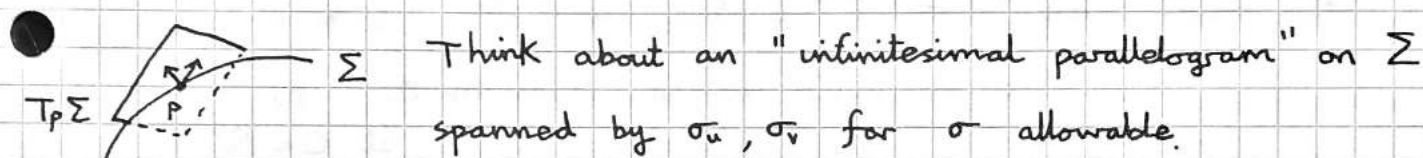 Σ Think about an "infinitesimal parallelogram" on Σ
TₚΣ p spanned by σᵤ, σᵥ for σ allowable.